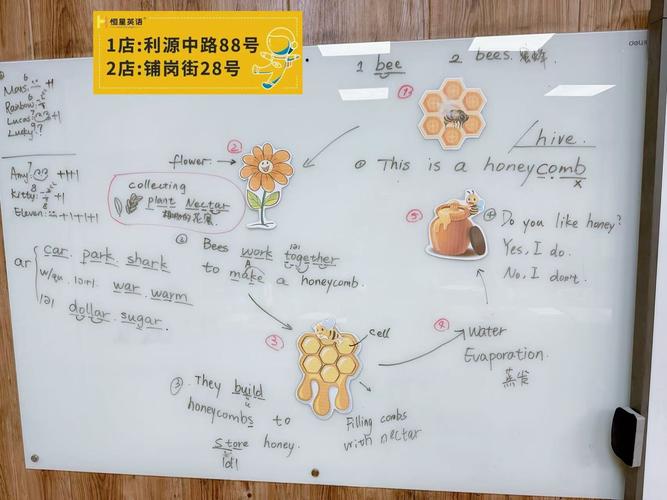 恒星英语
1店:利源中路88号
2店:铺岗街28号
deli
1 bee 2 bees. 蜜蜂.
Mars:
Rainbow:
Lucas: +1
Lucky: ?
Amy:
Kitty: +1
Eleven: +1+1+1
①
hive.
① This is a honeycomb
x
② flower.
collecting
plant Nectar
⑤ ④ Do you like honey?
Yes, I do.
No, I don't.
② Bees work together
to make a honeycomb.
ar car. park. shark
w/qu. war. warm
|ə| dollar. sugar.
③ cell
④ Water
Evaporation.
蒸发
③. They build
honeycombs to
store honey.
|d|
Filling combs
with nectar